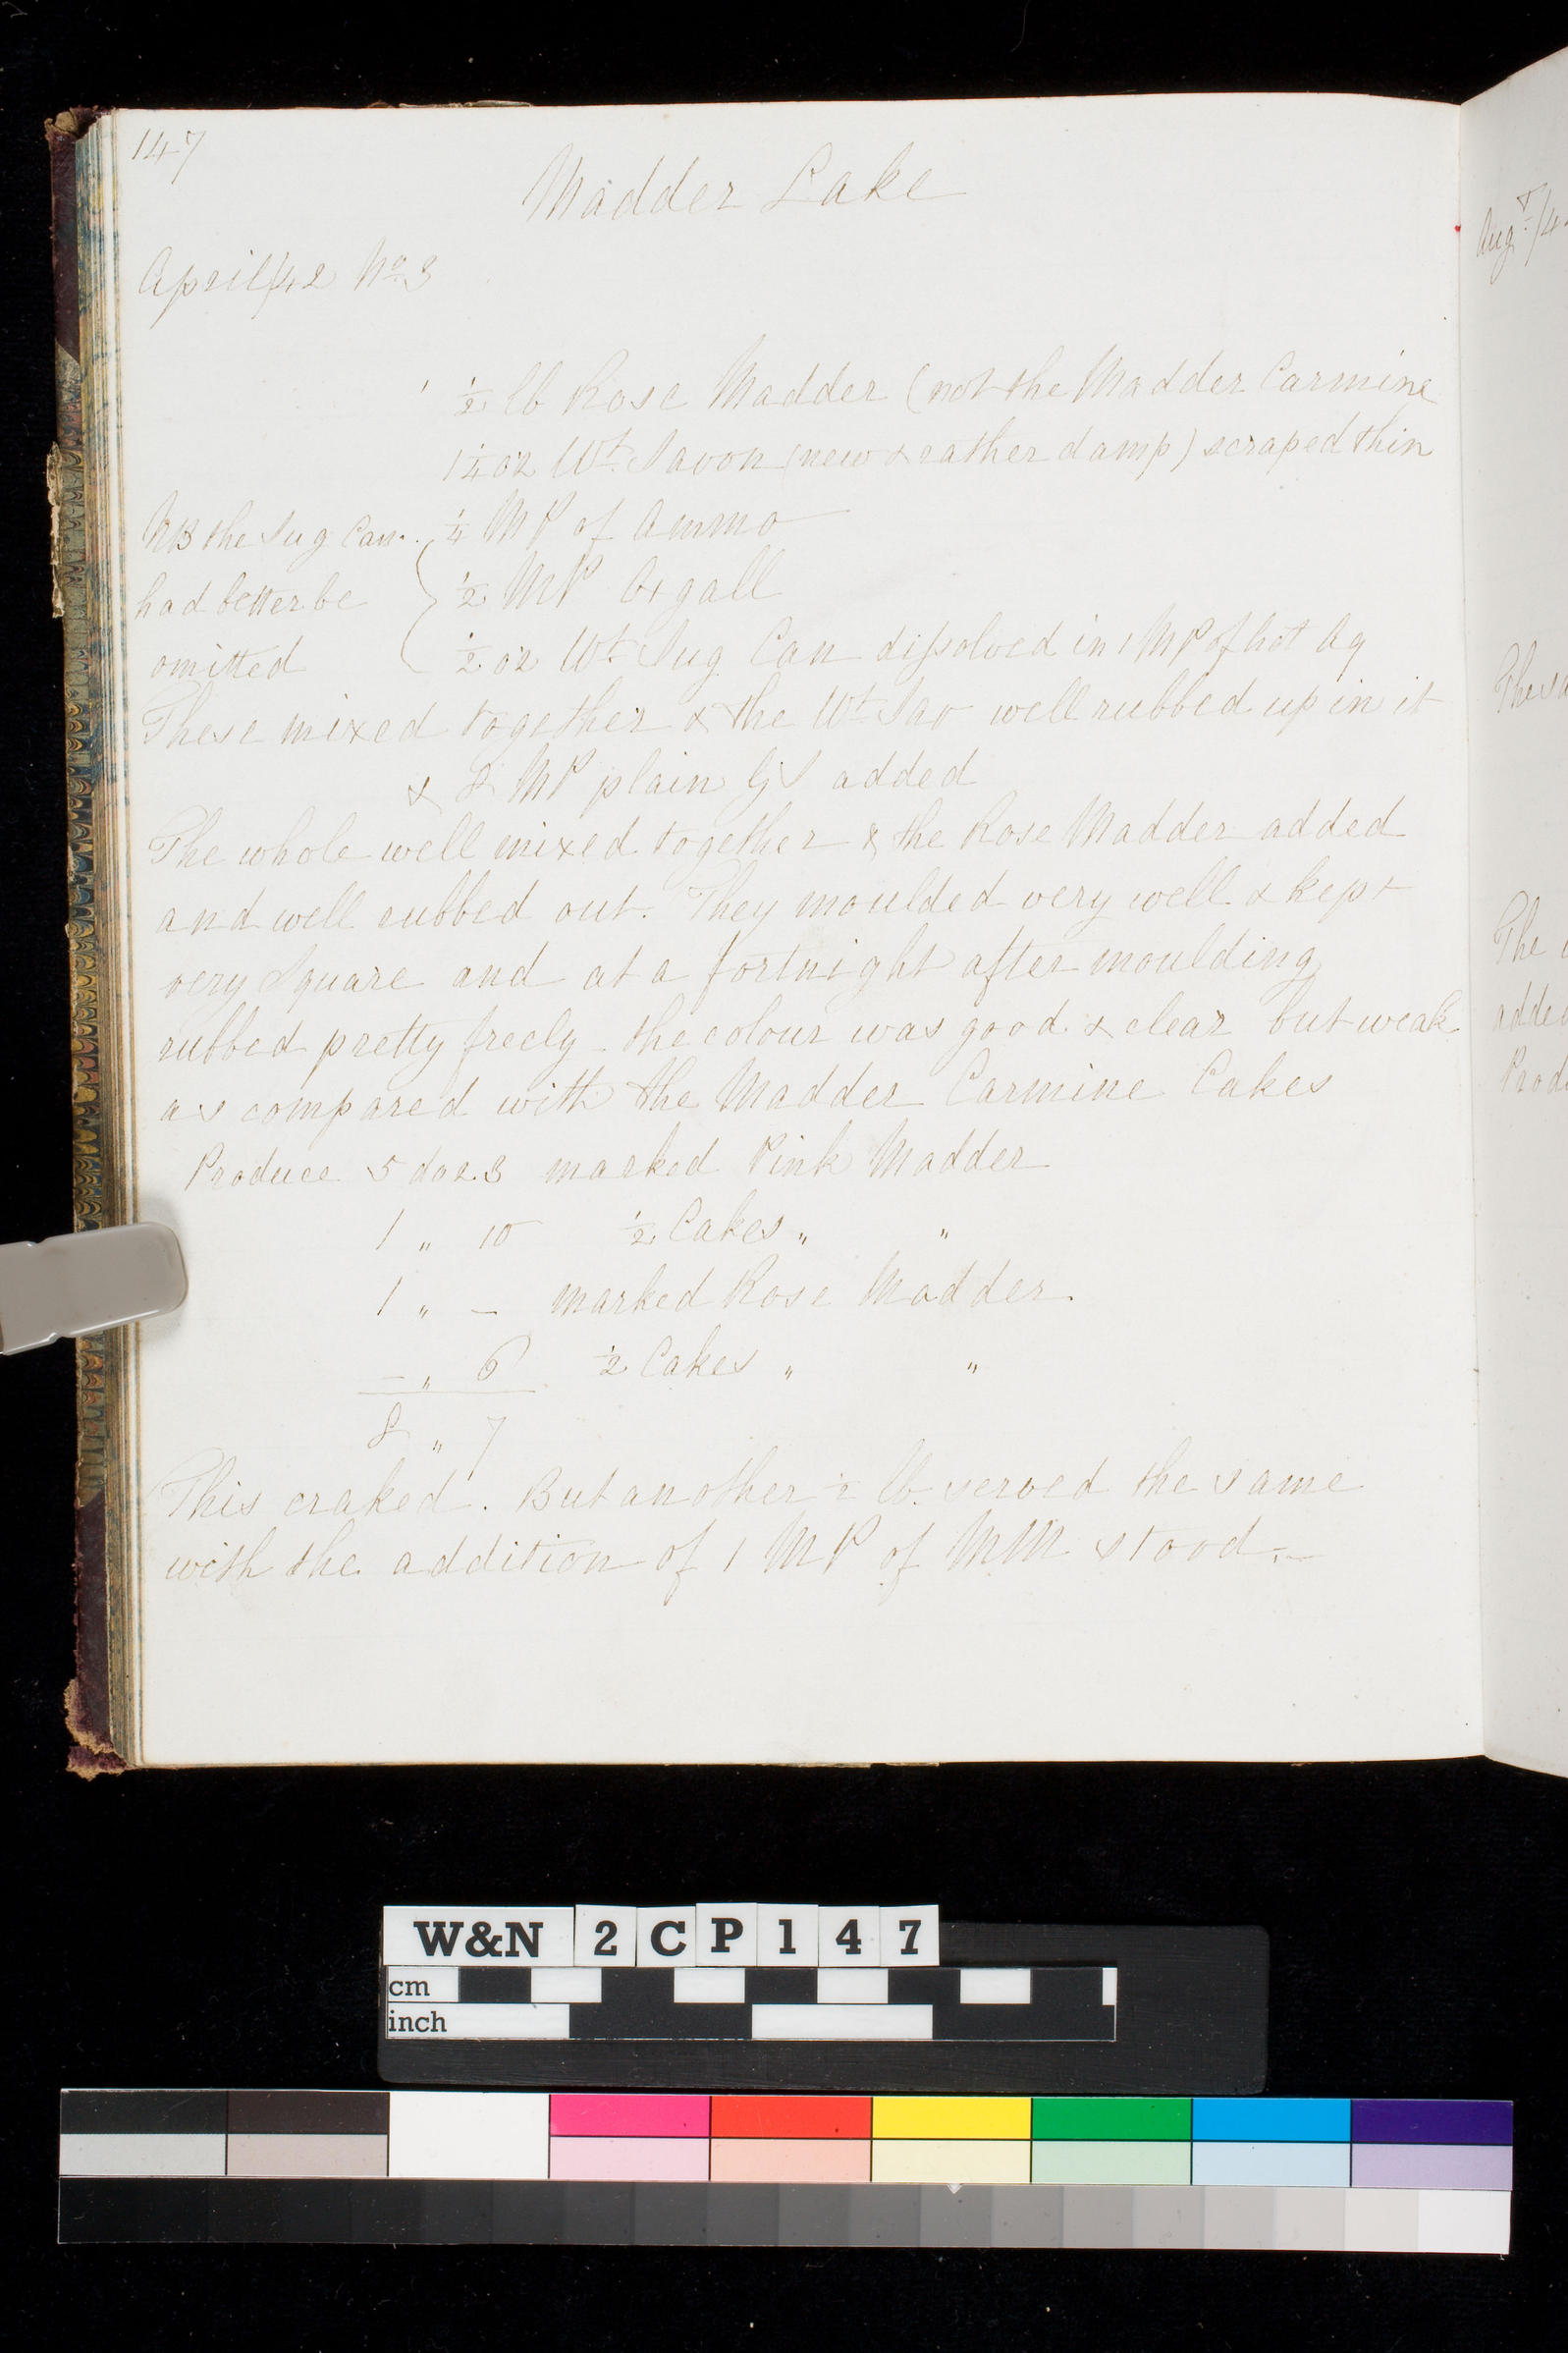 147
Madder Lake
April/42 No 3
1/2 lb Rose Madder (not the Madder Carmine
1 1/4 oz Wt. Savon (new & rather damp) scraped thin
NB the Sug Can. 1/4 MP of Ammo
had better be 1/2 MP Oxgall
omitted 1/2 oz Wt. Sug Can difsolved in 1 MP of hot Aq
These mixed together & the Wt Sav well rubbed up in it
& 2 MP plain GS added
The whole well mixed together & the Rose Madder added
and well rubbed out. They moulded very well & kept
very Square and at a fortnight after moulding
rubbed pretty freely - the colour was good & clear but weak
as compared with the Madder Carmine Cakes
Produce 5 doz. 3 marked Pink Madder
1 " 10 1/2 Cakes " "
1 " - marked Rose Madder.
- " 6 1/2 Cakes " "
8 " 7
This craked. But another 1/2 lb. served the same
with the addition of 1 MP of MM stood.-
Augt/4
The
The
added
Prod
W&N 2CP147
cm
inch